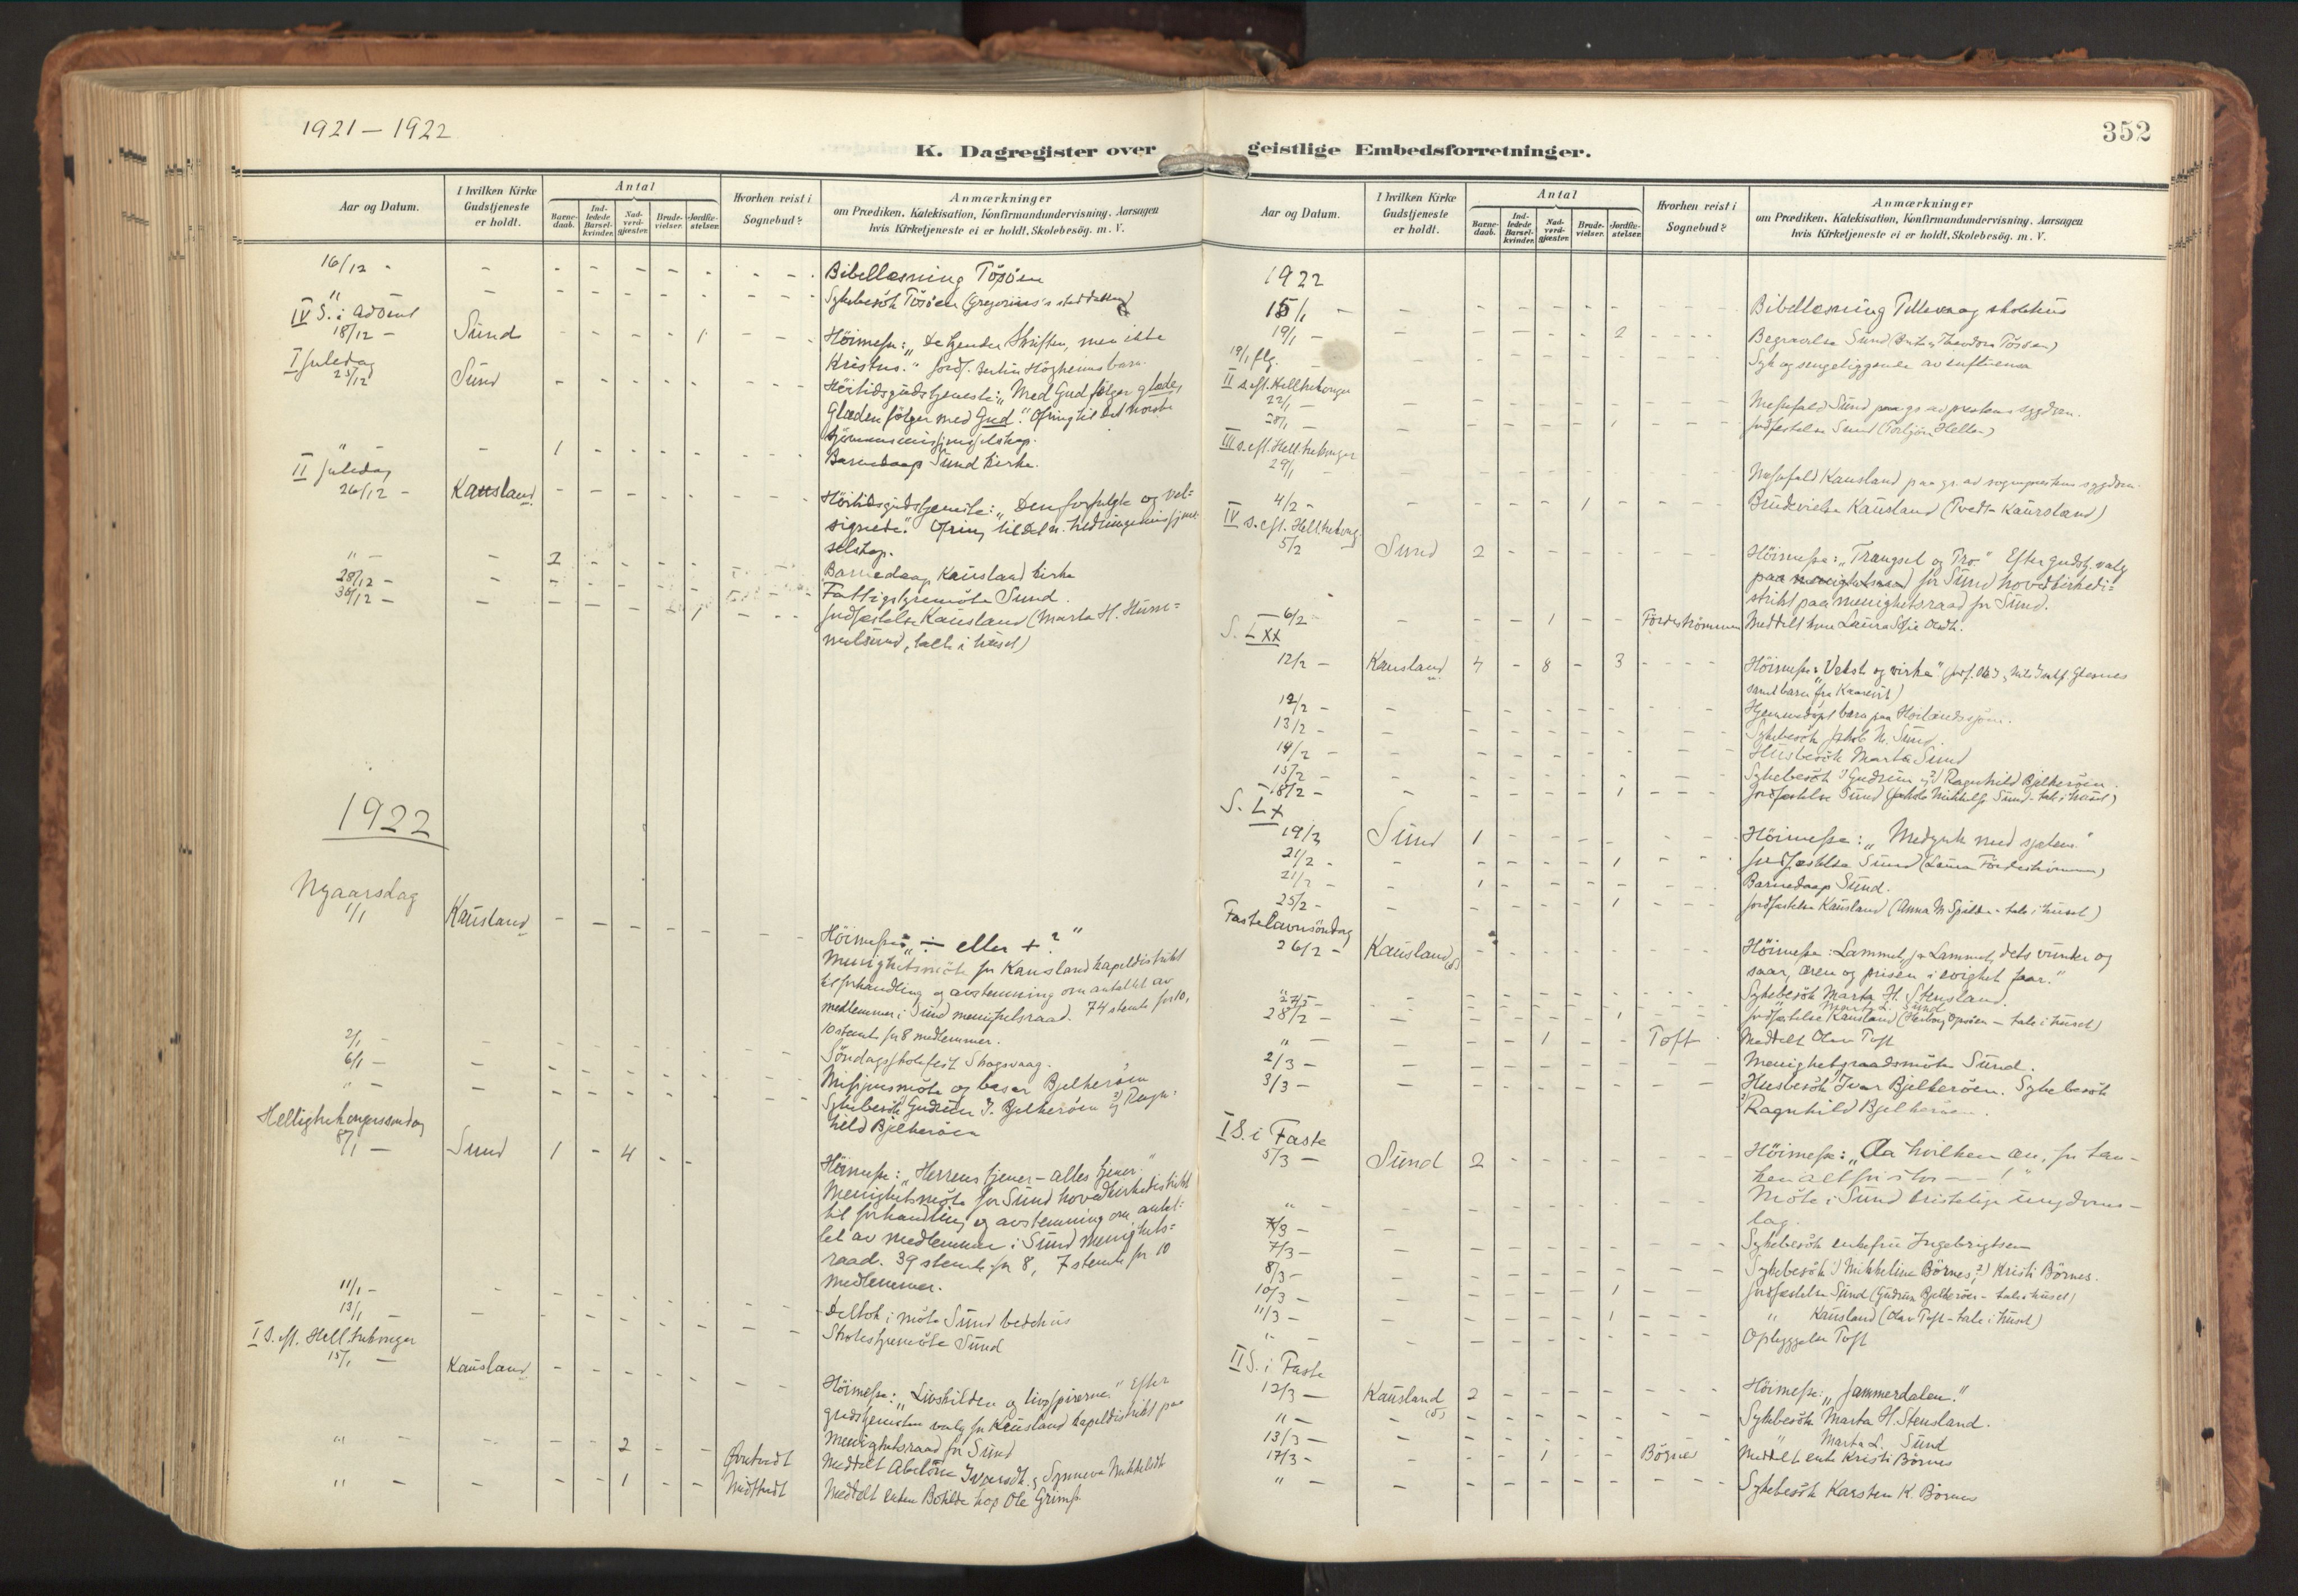 1921 – 1922
352
K. Dagregister over geistlige Embedsforretninger.
Aar og Datum.
I hvilken Kirke Gudstjeneste er holdt.
Antal
Barnedaab.
Indledede Barselkvinder.
Nadverdgjæster.
Brudevielser.
Jordfæstelser.
Hvorhen reist i Sognebud?
Anmærkninger
om Prædiken, Katekisation, Konfirmandundervisning, Aarsagen
hvis Kirketjeneste ei er holdt, Skolebesög. m. V.
16/12 - Bibellæsning Tösöen
" Sykebesök Tösöen
IV S. i Advent
18/12 – Sund 1 Höimesse: „De kjender Skriften, men ikke
Kristus."
I Juledag
25/12 Sund Höitidsgudstjeneste: „Med Gud følger glæde,
Glæden følger med Gud." Ofring til Det norske
" 1 Barnedaap Sund kirke.
II Juledag
26/12 – Kausland Höitidsgudstjeneste: „Den forfulgte og vel=
signede."
selskap.
" – 2 Barnedaap Kausland kirke
28/12 – Fattigstyremöte Sund.
30/12 – 1 Jordfæstelse Kausland (Marta H. Hum=
melsund, tale i huset)
1922
Nyaarsdag
1/1 Kausland Höimesse: „÷ eller + ?"
Menighetsmöte for Kausland kapeldistrikt
til forhandling og avstemning om antallet av
medlemmer i Sund menighetsraad. 74 stemte for 10,
10 stemte for 8 medlemmer.
2/1 – Söndagsskolefest Skogsvaag.
6/1 – Misjonsmöte og basar Bjelkeröen
" – Sykebesök 1) Gudrun J. Bjelkeröen 2) Ragn=
hild Bjelkeröen
Helligtrekongerssøndag
8/1 – Sund 1 - 4 Höimesse: „Herrens tjener – alles tjener."
Menighetsmöte for Sund hovedkirkedistrikt
til forhandling og avstemning om antal=
let av medlemmer i Sund menighets=
raad. 39 stemte for 8, 7 stemte for 10
medlemmer.
11/1 – Deltok i möte Sund bedehus
13/1 – Skolestyremöte Sund
I S. eft. Hell. tre konger
15/1 – Kausland Höimesse: „Livskilden og livsspirerne." Efter
gudstjenesten valg for Kausland kapeldistrikt paa
Menighetsraad for Sund
" – 2 Meddelt Abelone Ivarsdt. og Synneva Mikkelsdt
" – 1 Midttvedt Meddelt enken Botilda hos Ole Grimss.
Aar og Datum.
I hvilken Kirke Gudstjeneste er holdt.
Antal
Barnedaab.
Indledede Barselkvinder.
Nadverdgjæster.
Brudevielser.
Jordfæstelser.
Hvorhen reist i Sognebud?
Anmærkninger
om Prædiken, Katekisation, Konfirmandundervisning, Aarsagen
hvis Kirketjeneste ei er holdt, Skolebesög. m. V.
1922
15/1 – Bibellæsning Tellevaag skolehus
19/1 – 2 Begravelse Sund
19/1 flg. Syk og sengeliggende av influensa
II S. eft. Hell. tre konger
22/1 – Messefald Sund paa gr. av prestens sygdom.
28/1 – 1 Jordfæstelse Sund
III S. eft. Hell. tre konger
29/1 Messefald Kausland paa gr. av sogneprestens sygdom.
4/2 – 1 Brudevielse Kausland (Tvedt – Kausland)
IV S. eft. Hell. tre kong.
5/2 Sund 2 Höimesse: „Trængsel og Tro." Efter gudstj. valg
paa menighetsraad for Sund hovedkirkedi=
strikt paa menighetsraad for Sund.
6/2 1 Fördeströmmen Meddelt
S. Lxx
12/2 – Kausland 4 - 8 - 3 Höimesse: „Vekst og virke."
samt barn fra
12/2 – Hjemmedöpt barn paa
13/2 – Sykebesök Jakob M. Sund.
14/2 – Husbesök Marta Sund
15/2 – Sykebesök 1) Gudrun og 2) Ragnhild Bjelkeröen.
18/2 – 1 Jordfæstelse Sund (Jakob Mikkels. Sund – tale i huset)
S. Lx
19/2 Sund 1 Höimesse: „Medynk med sjælen."
21/2 – 1 Jordfæstelse Sund
21/2 – 1 Barnedaap Sund.
25/2 – 1 Jordfæstelse Kausland (Anna M. Spilde – tale i huset)
Fastelavnsöndag
26/2 – Kausland Höimesse: Lammet, ja Lammet, dets vunder og
saar, æren og prisen i evighet faar."
Sykebesök Marta H. Stensland.
27/2 – " Marta L. Sund
28/2 – 1 Jordfæstelse Kausland – tale i huset)
" – 1 Toft Meddelt Olav Toft
2/3 – Menighetsraadsmöte Sund.
3/3 – Husbesök Ivar Bjelkeröen. Sykebesök
Ragnhild Bjelkeröen.
I S. i Faste
5/3 – Sund 2 Höimesse:
" – Möte i Sund kristelige ungdoms-
lag.
7/3 – Sykebesök enkefru Ingebrigtsen
7/3 – Sykebesök 1) Mikkeline Börnes, 2) Kristi Börnes.
8/3 – 1 Jordfæstelse Sund (Gudrun Bjelkeröen – tale i huset)
10/3 – 1 " Kausland (Olav Toft – tale i huset)
11/3 – Opbyggelse Toft
II S. i Faste
12/3 – Kausland 2 Höimesse: „Jammerdalen."
" – Sykebesök Marta H. Stensland.
13/3 – " Marta L. Sund
17/3 – 1 Börnes Meddelt enke Kristi Börnes
" – Sykebesök Karsten K. Börnes